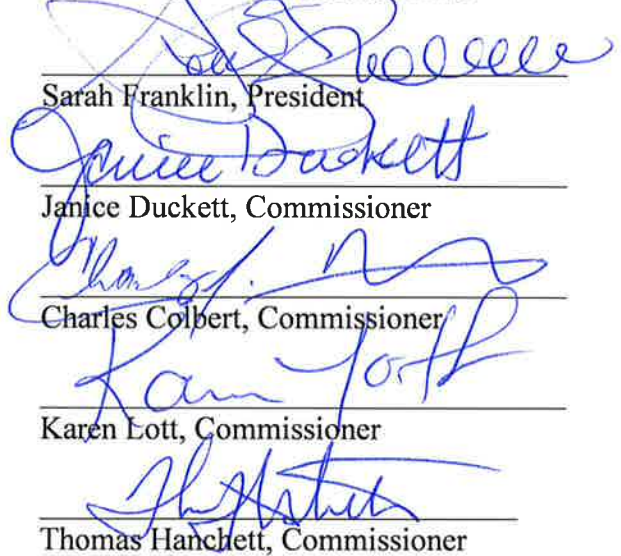 Sarah Franklin, President
Janice Duckett
Janice Duckett, Commissioner
Charles Colbert, Commissioner
Karen Lott, Commissioner
Thomas Hanchett, Commissioner